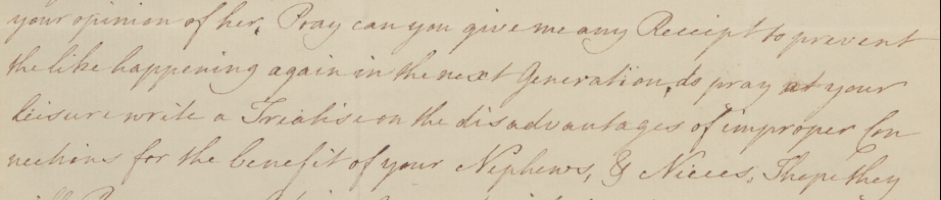 your opinion of her, Pray can you give me any Receipt to prevent
the like happening again in the next Generation, do pray at your
leisure write a Treatise on the disadvantages of improper Con
nections for the benefit of your Nephews, & Nieces, I hope they